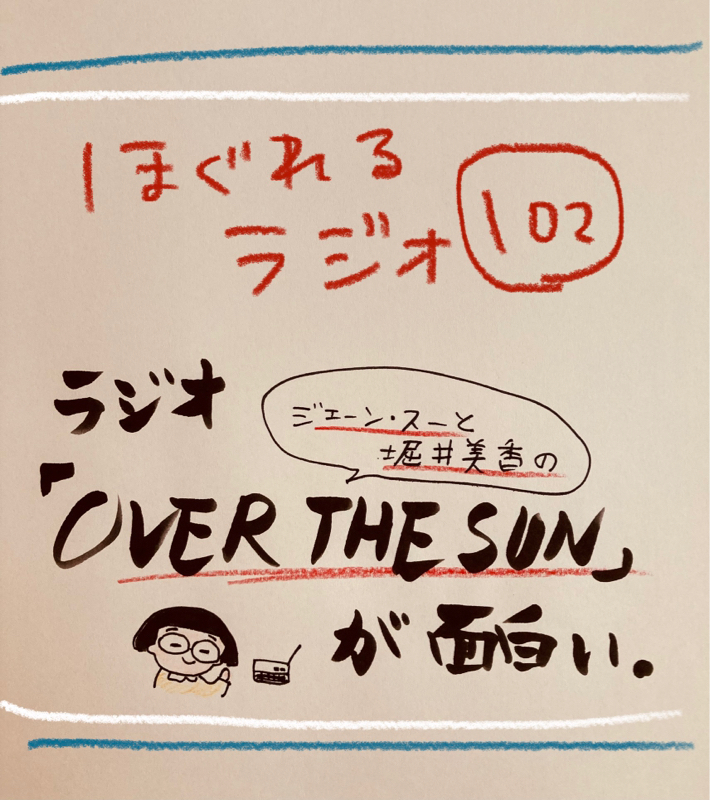 ほぐれる
ラジオ 102
ラジオ
ジェーン・スーと
堀井美香の
「OVER THE SUN」
が面白い。